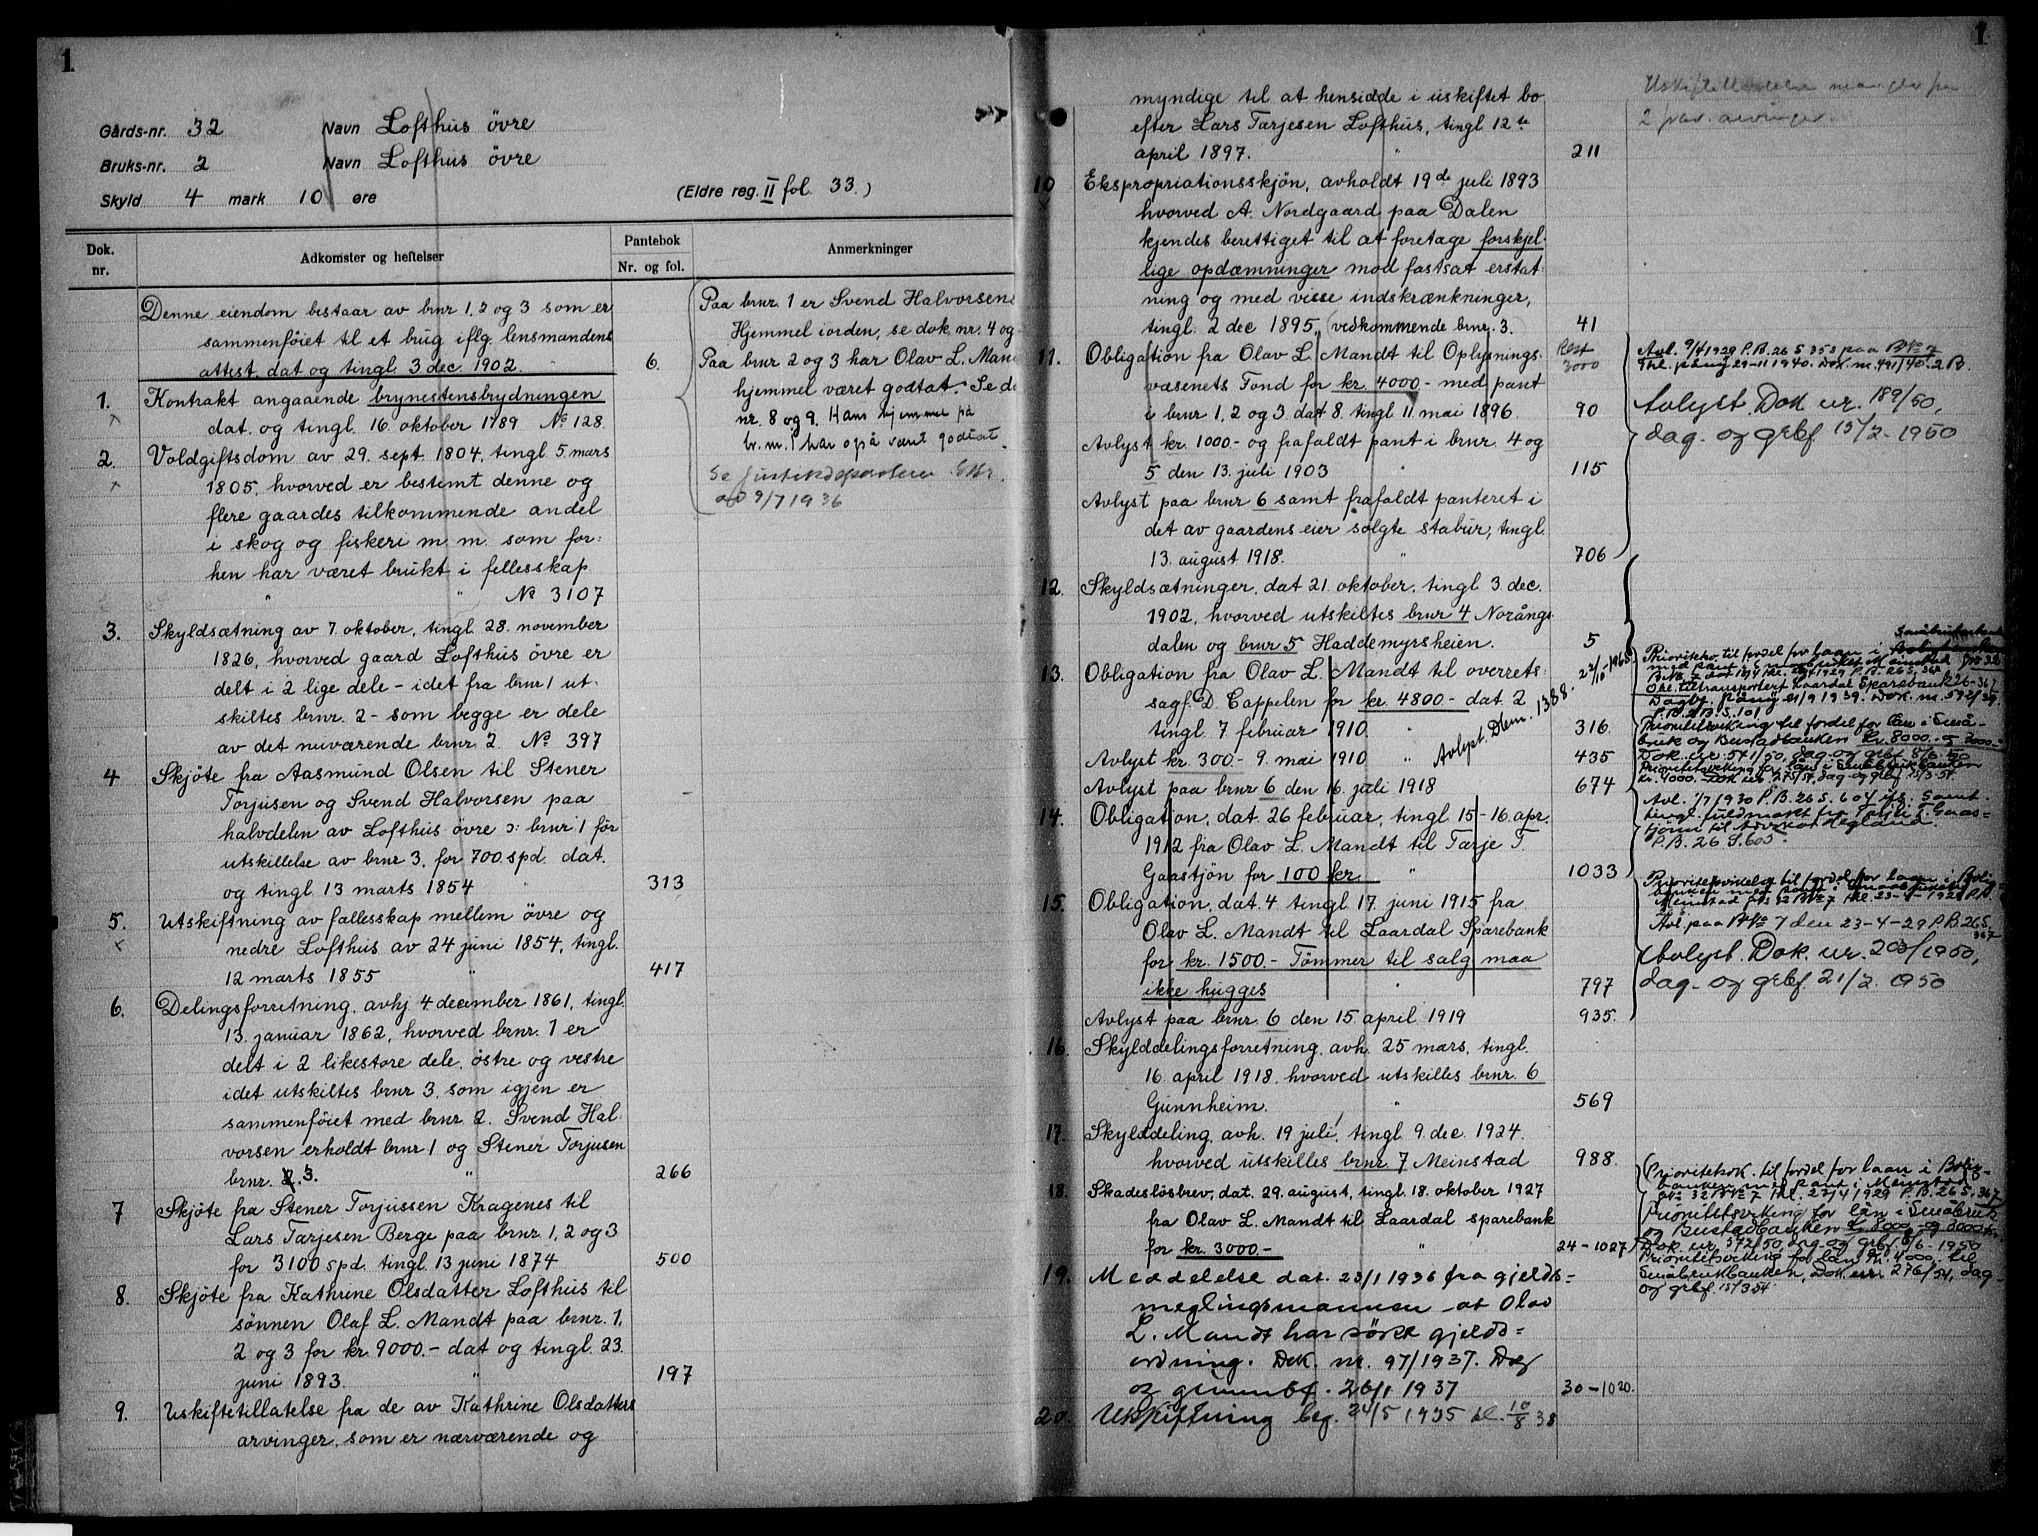 1
Gårds-nr. 32 Navn Lofthus övre
Bruks-nr. 2 Navn Lofthus övre
Skyld 4 mark 10 øre (Eldre reg. II fol. 33.)
Dok. nr.
Adkomster og heftelser
Pantebok
Nr. og fol.
Anmerkninger
Denne eiendom bestaar av brnr 1, 2 og 3 som er
sammenföiet til et brug iflg. lensmandens
attest. dat og tingl. 3 dec. 1902. " 6.
1. Kontrakt angaaende brynestensbrydningen
dat. og tingl. 16. oktober 1789 No 128.
2. Voldgiftsdom av 29. sept. 1804, tingl. 5. mars
1805, hvorved er bestemt denne og
flere gaardes tilkommende andel
i skog og fiskeri m. m. som for:
hen har været brukt i fellesskap.
" " No 3107
3. Skyldsætning av 7. oktober, tingl. 28. november
1826, hvorved gaard Lofthus övre er
delt i 2 lige dele - idet fra brnr 1 ut-
skiltes brnr. 2 - som begge er dele
av det nuværende brnr. 2. No 397
4 Skjöte fra Aasmund Olsen til Stener
Torjusen og Svend Halvorsen paa
halvdelen av Lofthus övre ɔ: brnr. 1 för
utskillelse av brnr 3, for 700 spd. dat.
og tingl. 13 marts 1854 " 313
5. Utskiftning av fallesskap mellem övre og
nedre Lofthus av 24 juni 1854, tingl.
12 marts 1855 " 417
6. Delingsforretning, avhj 4 december 1861, tingl.
13. januar 1862, hvorved brnr. 1 er
delt i 2 likestore dele, östre og vestre
idet utskiltes brnr 3, som igjen er
sammenföiet med brnr. 2. Svend Hal:
vorsen erholdt brnr 1 og Stener Torjusen
brnr. 2. 3. " 266
7 Skjöte fra Stener Torjussen Kragenes til
Lars Tarjesen Berge paa brnr 1, 2 og 3
for 3100 spd. tingl. 13 juni 1874 500
8. Skjöte fra Kathrine Olsdatter Lofthus til
sönnen Olaf L. Mandt paa brnr. 1,
2 og 3 for kr. 9000.- dat og tingl. 23.
juni 1893. " 197
9. Uskiftetillatelse fra de av Kathrine Olsdatters
arvinger, som er nærværende og
Paa brnr. 1 er Svend Halvorsens
Hjemmel iorden, se dok. nr. 4 og
Paa brnr 2 og 3 har Olav L. Man
hjemmel været godtat. Se do
nr. 8 og 9. Hans hjemmel på
br. nr. 1 har også vært godtat.
Se
9/7 1936
1
myndige til at hensidde i uskiftet bo
efter Lars Tarjesen Lofthus, tingl 12te
april 1897. " 211
2 arvinger
10 Ekspropriationsskjön, avholdt 19de juli 1893
hvorved A. Nordgaard paa Dalen
kjendes berettiget til at foretage forskjel-
lige opdæmninger mod fastsat erstat:
ning og med visse indskrænkninger,
tingl. 2 dec 1895, (vedkommende brnr. 3. 41
11. Obligation fra Olav L. Mandt til Oplysnings- Rest
væsenets Fond for kr. 4000.- med pant 3000
i brnr. 1, 2 og 3. dat 8. tingl 11 mai 1896. 90
Avlyst kr. 1000.- og frafaldt pant i brnr. 4 og
5 den 13. juli 1903 " 115
Avlyst paa brnr 6 samt frafaldt panteret i
det av gaardens eier solgte stabur, tingl.
13. august 1918. " 706
12. Skyldsætninger, dat 21. oktober, tingl. 3 dec.
1902, hvorved utskiltes brnr 4 Norångs-
dalen og brnr 5 Haddemyrsheien. 5
13. Obligation fra Olav L. Mandt til overrets:
sagf. D. Cappelen for kr. 4800.- dat. 2
tingl. 7 februar 1910. " 316.
Avlyst kr. 300.- 9. mai 1910 " 435
Avlyst paa brnr 6 den 16. juli 1918 674
Avlyst. Dnr. 1388. 22/10-1965
14. Obligation, dat. 26 februar, tingl. 15-16. apr.
1912 fra Olav L. Mandt til Tarje T.
Gaastjön for 100 kr. " 1033
15. Obligation, dat. 4 tingl 17. juni 1915 fra
Olav L. Mandt til Laardal Sparebank
for kr. 1500.- Tömmer til salg maa
ikke hugges " 797
Avlyst paa brnr. 6 den 15. april 1919 935.
16. Skylddelingsforretning, avh. 25 mars, tingl.
16. april 1918, hvorved utskilles brnr. 6
Gunnheim. " 569
17. Skylddeling, avh. 19 juli, tingl 9. dec. 1924.
hvorved utskilles brnr. 7 Meinstad 988.
18. Skadeslösbrev, dat. 29. august, tingl. 18. oktober 1927
fra Olav L. Mandt til Laardal sparebank
for kr. 3000.- " 24-1027
19. Meddelelse dat. 23/1 1936 fra gjelds=
meglingsmannen at Olav
L. Mandt har søkt gjelds=
ordning. Dok. nr. 97/1937. Dag
og grunnbf. 26/1 1937 30-1020.
20. Utskiftning beg. 24/5 1935 sl. 10/8 38
Avl. 9/4 1929 P.B. 26 S 358 paa B.No 7
Thl. påny 29-11 1940. Dok. nr. 491/40. 2 B.
Avlyst. Dok. nr. 189/50,
dag- og grbf. 15/2-1950
Prioritetsv. til fordel for laan i Småbrukerbank
Overf. tiltransportert Laardal Sparebank 26-367
Dagbf. påny 21/9 1939. Dok. nr. 572/39.
P.B. 2 B. S. 101
Prioritetsviking til fordel for lån i Små-
bruk og Bustadbanken kr. 8000.- og 3000.-
Dok. nr. 571/50, dag- og grbf. 8/6-50
Prioritetsviking for lån i Småbrukbanken
kr. 4000.- Dok. nr. 275/54, dag- og grbf. 15/3-54
Avl. 1/7 1930 P.B. 26 S. 604 ifl. Samt.
tingl. fuldmakt fra Tarje T. Gaas-
tjönn til advokat Hegland.
P.B. 26 S. 603.
Prioritetsvikelse til fordel for laan i Boli-
banken med pant i
Meinstad No 32 B No 7 thl. 23-4-1929 P.B.
Avl. paa B No 7 den 23-4-29 P.B. 26 S.
367
Avlyst. Dok. nr. 203/1950,
dag- og grbf. 21/2. 1950
Prioritetsvik. til fordel for laan i Bolig-
banken med pant i Meinstad
No 32 B No 7 thl. 23/4 1929 P.B. 26 S. 367
Prioritetsviking for lån i Småbruk
og Bustadbanken kr. 8000.- og 3000.-
Dok. nr. 572/50, dag- og grbf. 8/6-1950
Prioritetsviking for lån kr. 4000 til
Småbrukbanken, Dok. nr. 276/54, dag-
og grbf. 15/3 54